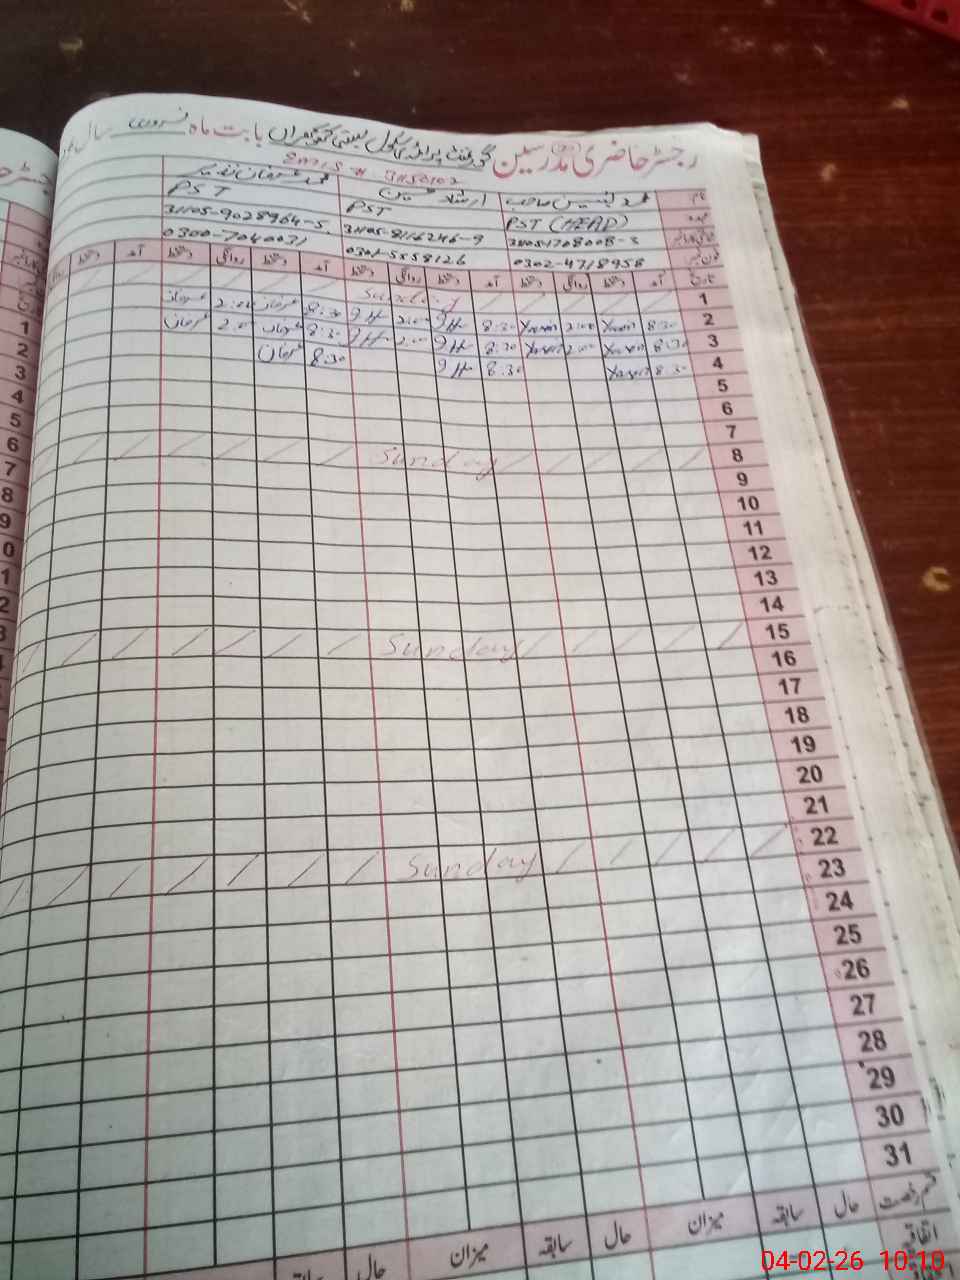 رجسٹر حاضری مدرسین گورنمنٹ پرائمری سکول بستی بابت ماہ فروری سال
EMIS # 31250102
نام محمد یٰسین صاحب ارشاد حسین محمد فرمان نذیر
عہدہ PST (HEAD) PST PST
31105-8116246-9 31105-9028964-5
فون نمبر 0302-4718958 0301-5558126 0300-7040031
تاریخ آمد دستخط روانگی دستخط آمد دستخط روانگی دستخط آمد دستخط روانگی دستخط آمد دستخط
1 Sunday
2 8:30 Yaseen 2:00 Yaseen 8:30 2:00 8:30 فرمان 2:00 فرمان
3 8:30 Yaseen 2:00 Yaseen 8:30 2:00 8:30 فرمان 2:00 فرمان
4 8:30 Yaseen 8:30 8:30 فرمان
5
6
7
8 Sunday
9
10
11
12
13
14
15 Sunday
16
17
18
19
20
21
22 Sunday
23
24
25
26
27
28
29
30
31
قسم رخصت حال سابقہ میزان حال سابقہ میزان حال
اتفاقیہ
04-02-26 10:10